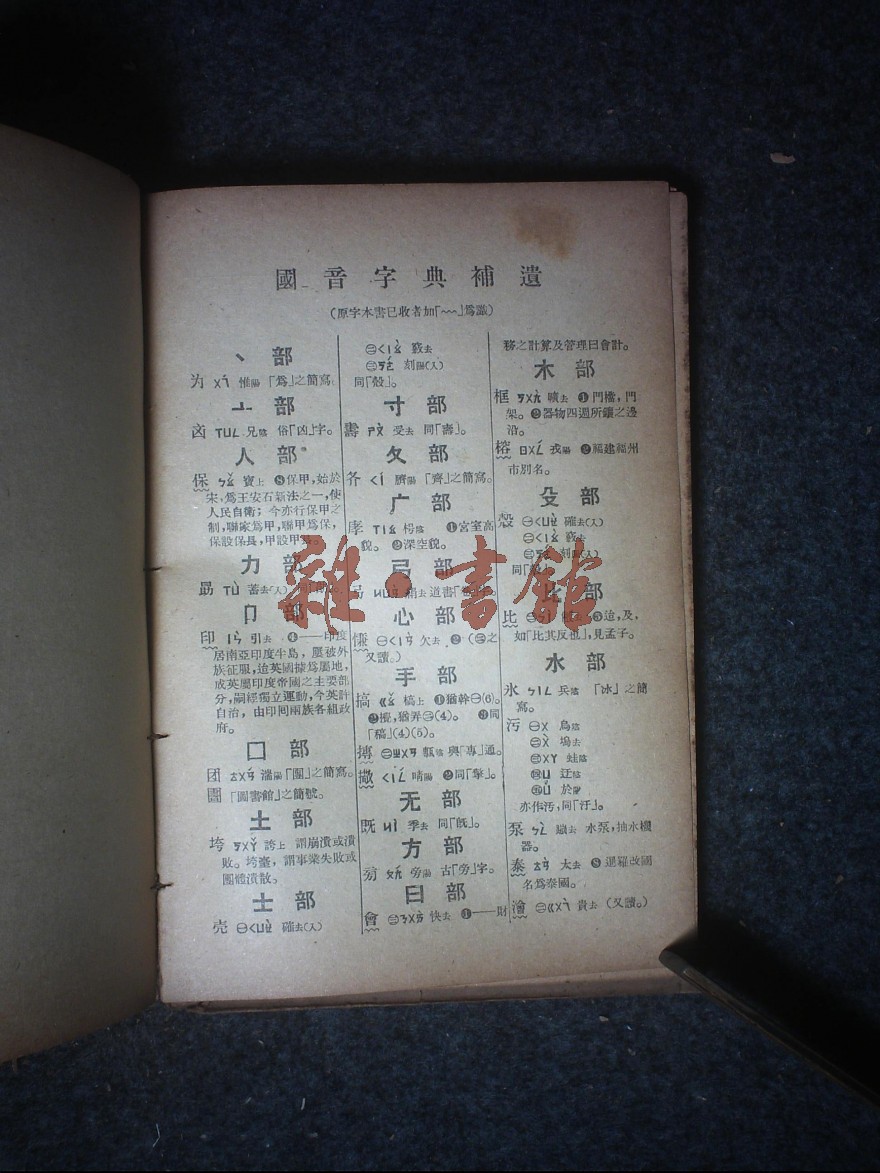 國音字典補遺
(原字本書已收者加「﹏」爲識)
丶部
为 ㄨㄟˊ 惟陽 「爲」之簡寫。
亠部
㐫 ㄒㄩㄥ 兄陰 俗「凶」字。
人部
保 ㄅㄠˇ 寶上 ❽保甲,始於
宋,爲王安石新法之一,使
人民自衛;今亦行保甲之
制,聯家爲甲,聯甲爲保,
保設保長,甲設甲長。
力部
勗 ㄒㄩˋ 蓄去(入)
卩部
印 ㄧㄣˋ 引去 ❹——印度
居南亞印度半島,屢被外
族征服,迨英國據爲屬地,
成英屬印度帝國之主要部
分,嗣經獨立運動,今英許
自治,由印回兩族各組政
府。
囗部
团 ㄊㄨㄢˊ 湍陽「團」之簡寫。
圕 「圖書館」之簡號。
土部
垮 ㄎㄨㄚˇ 誇上 謂崩潰或潰
敗。垮臺,謂事業失敗或
團體潰散。
士部
売 ㊀ㄑㄩㄝˋ 確去(入)
㊁ㄑㄧㄠˋ 竅去
㊂ㄎㄜˊ 刻陽(入)
同「殼」。
寸部
壽 ㄕㄡˋ 受去 同「壽」。
夂部
㐱 ㄑㄧˊ 臍陽 「齊」之簡寫。
广部
庨 ㄒㄧㄠ 枵陰 ❶宮室高
貌。❷深空貌。
弓部
心部
慊 ㊀ㄑㄧㄢˋ 欠去 ❷(㊁之
又讀。)
手部
搞 ㄍㄠˇ 槁上 ❶猶幹㊀(6)。
❷攪,猶弄㊀(4)。 ❸同
「稿」(4)(5)。
摶 ㊁ㄓㄨㄢ 甎陰 與「專」通。
㩀 ㄑㄧㄥˊ 晴陽 ❷同「擎」。
无部
既 ㄐㄧˋ 季去 同「旣」。
方部
㫄 ㄆㄤˊ 旁陽 古「旁」字。
曰部
會 ㊂ㄎㄨㄞˋ 快去 ❶——財
務之計算及管理曰會計。
木部
框 ㄎㄨㄤˋ 曠去 ❶門檔,門
架。❷器物四週所鑲之邊
沿。
榕 ㄖㄨㄥˊ 戎陽 ❷福建福州
市別名。
殳部
殼 ㊀ㄑㄩㄝˋ 確去(入)
㊁ㄑㄧㄠˋ 竅去
㊂ㄎㄜˊ 刻陽(入)
比部
比 ❺迨,及,
如「比其反也」,見孟子。
水部
氷 ㄅㄧㄥ 兵陰 「冰」之簡
寫。
污 ㊀ㄨ 烏陰
㊁ㄨˋ 塢去
㊂ㄨㄚ 蛙陰
㊃ㄩ 迂陰
㊄ㄩˊ 於陽
亦作汚,同「汙」。
泵 ㄅㄥˋ 蹦去 水泵,抽水機
器。
泰 ㄊㄞˋ 太去 ❽暹羅改國
名爲泰國。
澮 ㊁ㄍㄨㄟˋ 貴去 (又讀。)
雜·書館